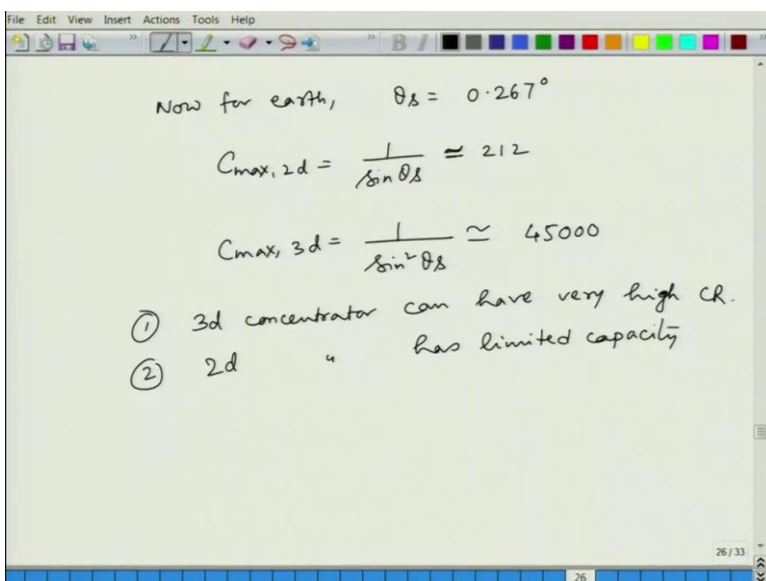 File Edit View Insert Actions Tools Help
Now for earth, θs = 0.267°
Cmax, 2d = 1/sin θs ≃ 212
Cmax, 3d = 1/sin² θs ≃ 45000
① 3d concentrator can have very high CR.
② 2d " has limited capacity
26 / 33
26